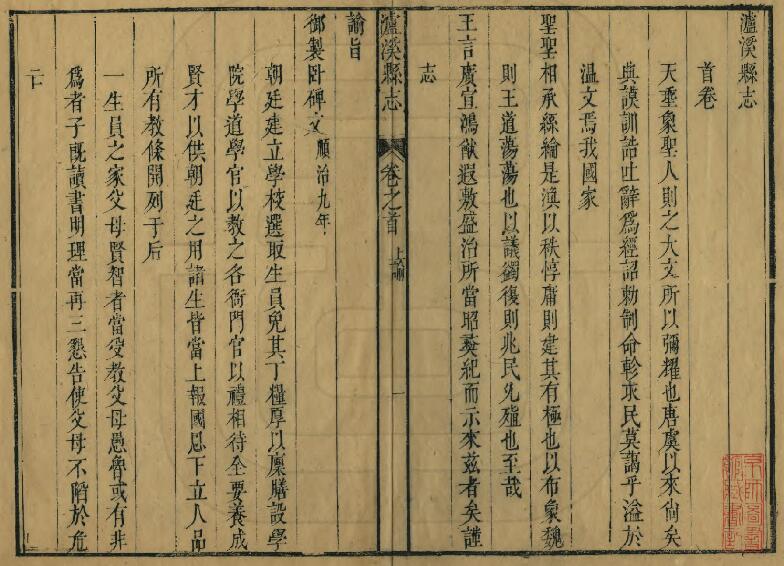 瀘溪縣志
首卷
天垂象聖人則之大文所以彌耀也唐虞以來尙矣
典謨訓誥吐辭爲經詔勅制命軫厥民莫藹乎溢於
温文焉我國家
聖聖相承絲綸是渙以秩惇庸則建其有極也以布象魏
則王道蕩蕩也以議蠲復則兆民允殖也至哉
王言廣宣鴻猷遐敷盛治所當昭彝紀而示來茲者矣謹
志
瀘溪縣志
卷之首
一
諭旨
御製卧碑文順治九年
朝廷建立學校選取生員免其丁糧厚以廩膳設學
院學道學官以教之各衙門官以禮相待全要養成
賢才以供朝廷之用諸生皆當上報國恩下立人品
所有教條開列于后
一生員之家父母賢智者當受教父母愚魯或有非
爲者子旣讀書明理當再三懇告使父母不陷於危